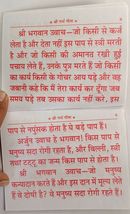 श्री गर्भ गीता
श्री भगवान उवाच—जो किसी से कर्ज
लेता है और देता नहीं इस पाप से स्त्री मरती
है। जो किसी की अमानत रखी हुई
पचाय लेते हैं, उनके पुत्र मरते हैं जो किसी
का कार्य किसी के गोचर आय पड़े और वह
जबानी कहे कि मैं तेरा कार्य कर दूँगा जब
समय पड़े तब उसका कार्य नहीं करे, इस
श्री गर्भ गीता
पाप से नपुंसक होता है ये बड़े पाप हैं।
अर्जुन उवाच हे भगवान! किस पाप से
मनुष्य सदा रोगी रहता है, और बिल्ली, स्त्री
तथा टट्टू का जन्म किस पाप से होता है।
श्री भगवान उवाच—जो मनुष्य
कन्यादान करते हैं और इस दान में मूल्य लेते
हैं वे दोषी हैं? वे मनुष्य सदा रोगी रहते हैं।